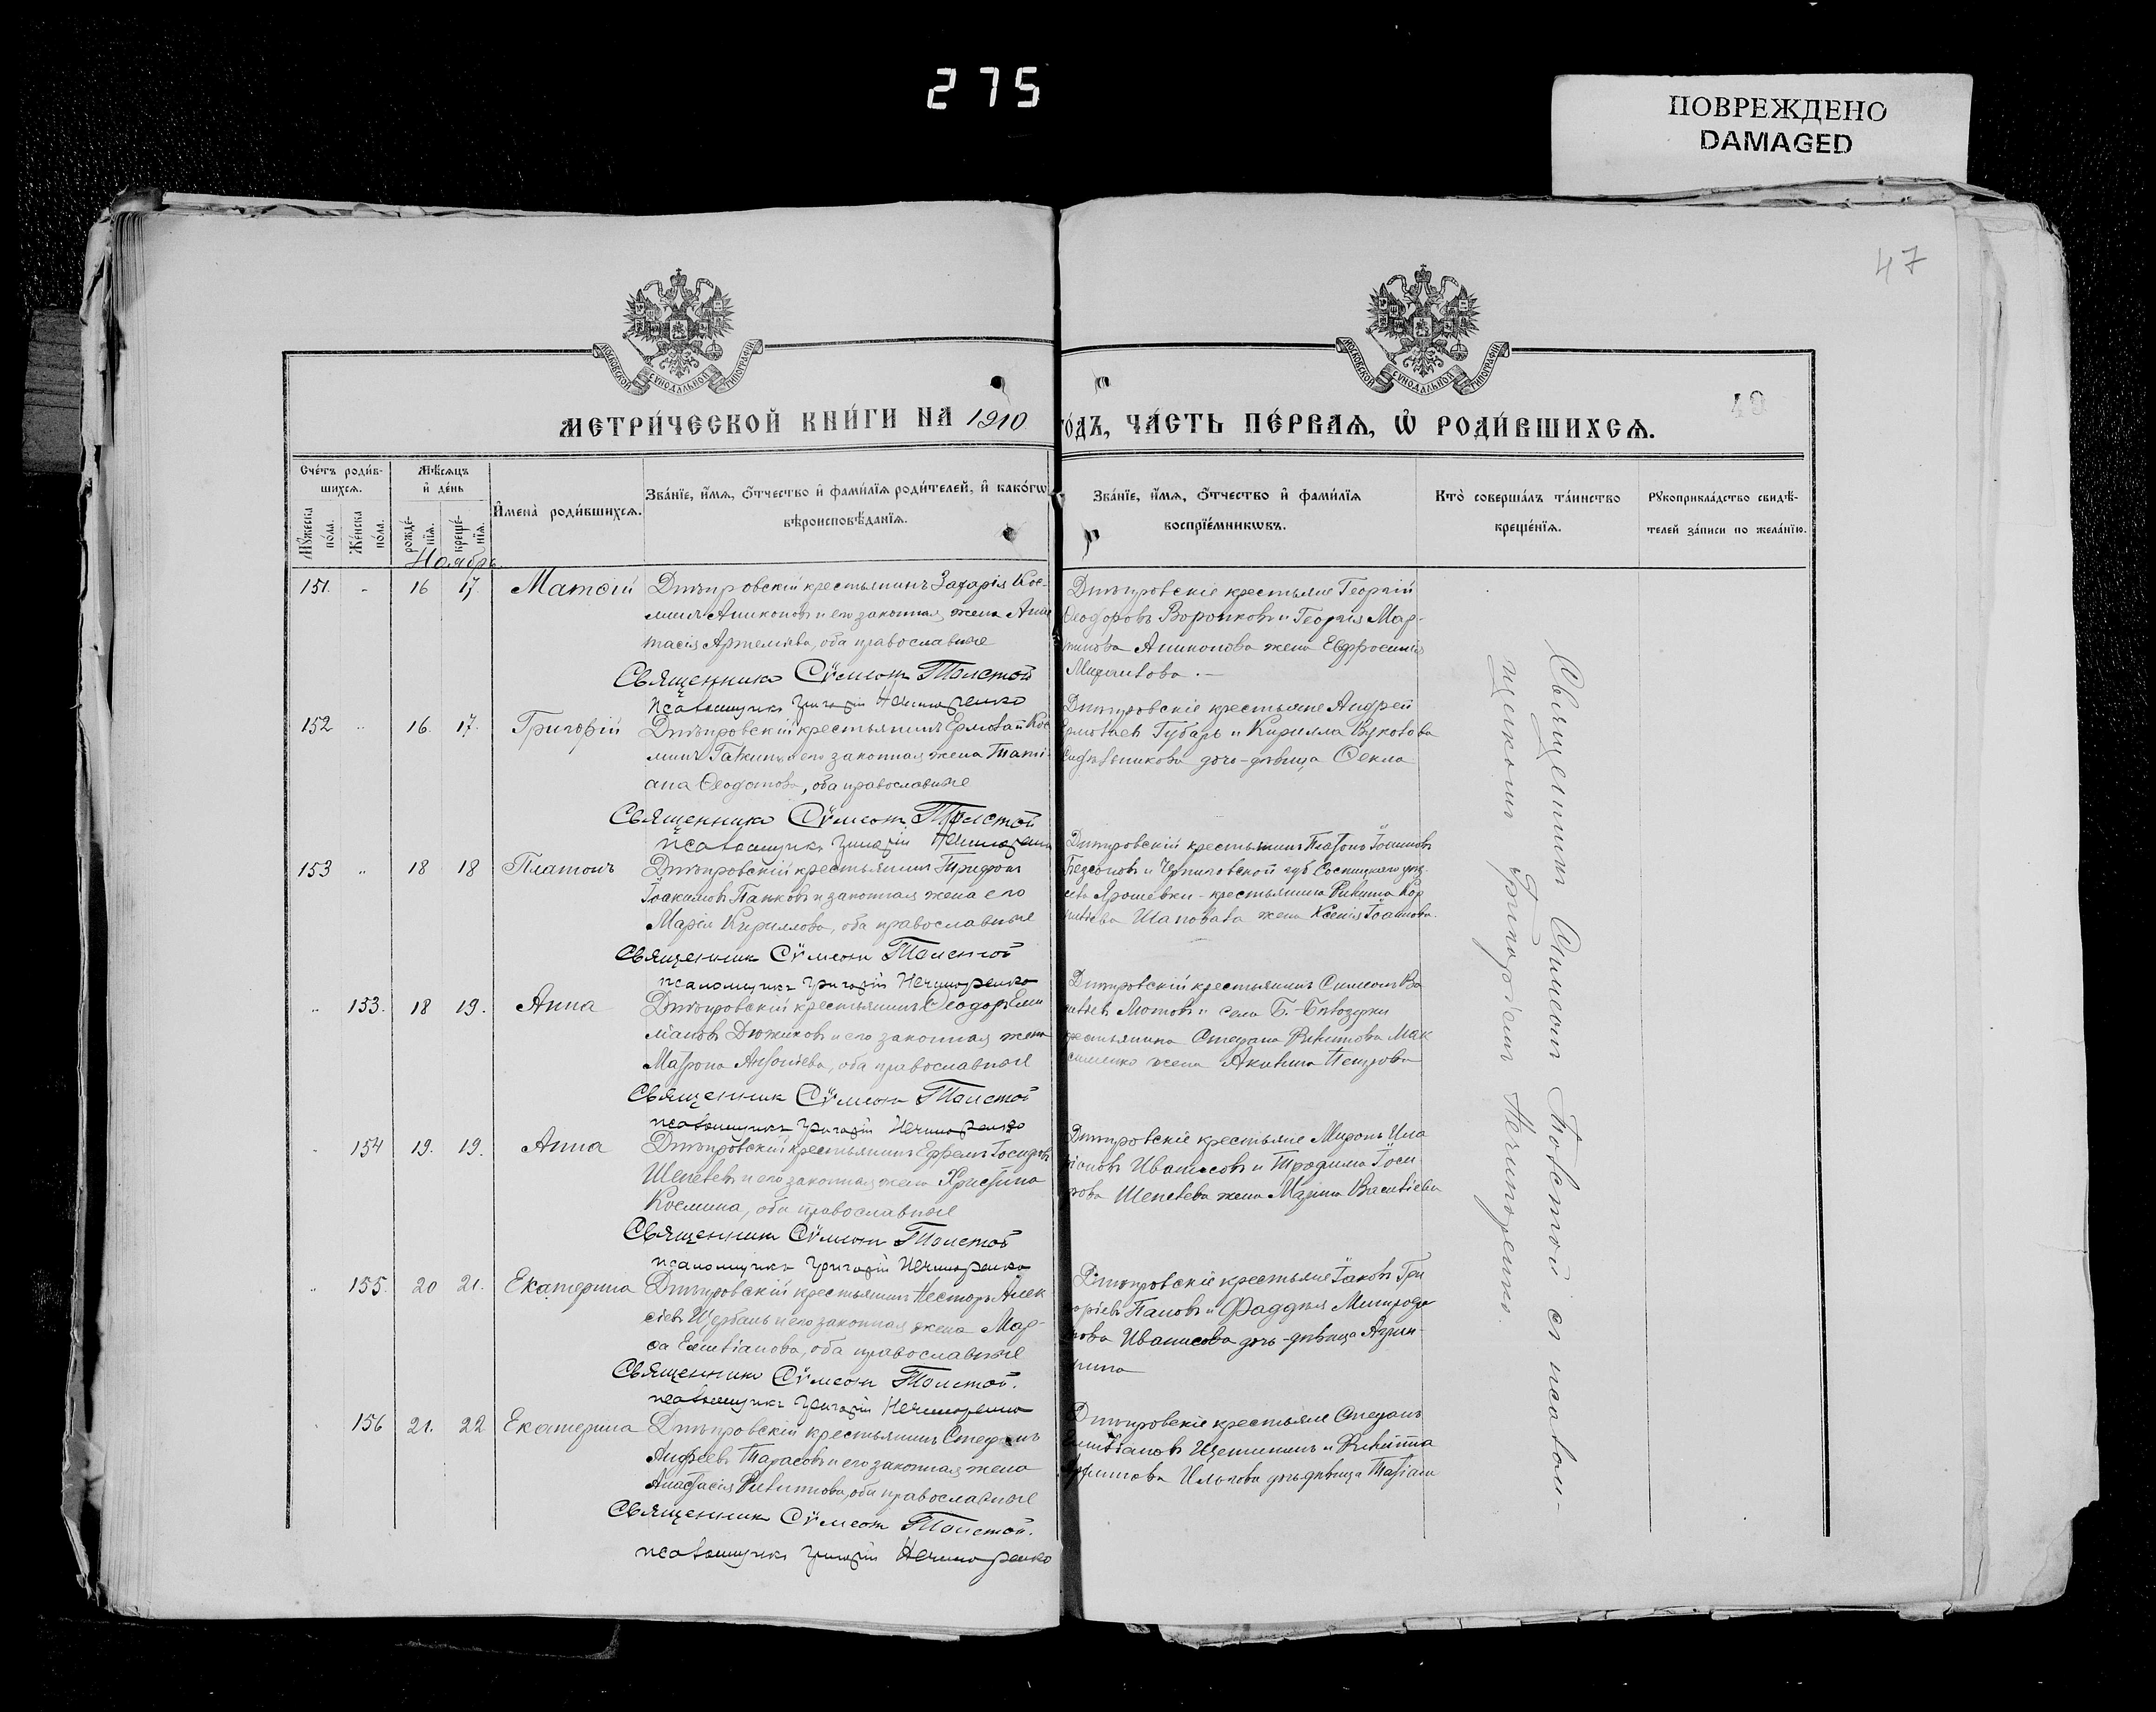 275
ПОВРЕЖДЕНО
DAMAGED
47
49
МОСКОВСКОЙ СѴНОДАЛЬНОЙ ТИПОГРАФІИ
МОСКОВСКОЙ СѴНОДАЛЬНОЙ ТИПОГРАФІИ
МЕТРИ́ЧЕСКОЙ КНИ́ГИ НА 1910
ГО́ДЪ, ЧА́СТЬ ПЕ́РВАѦ, Ѡ РОДИ́ВШИХСѦ.
Сче́тъ роди́в-
шихсѧ.
Мꙋ́жеска по́ла.
Же́нска по́ла.
Мѣ́сѧцъ
и҆ де́нь
рожде́-
нїѧ.
креще́-
нїѧ.
И҆мена̀ роди́вшихсѧ.
Зва́нїе, и҆́мѧ, ѻ҆́тчество и҆ фами́лїѧ роди́телей, и҆ како́гѡ
вѣроисповѣ́данїѧ.
Зва́нїе, и҆́мѧ, ѻ҆́тчество и҆ фами́лїѧ
воспрїе́мникѡвъ.
Кто̀ соверша́лъ та́инство
креще́нїѧ.
Рꙋкоприкла́дство свидѣ́-
телей за́писи по жела́нїю.
Ноябрь
151. - 16 17. Матѳій Днѣпровскій крестьянинъ Захарія Кос-
минъ Аниконовъ и его законная жена Анас
тасія Артеміева, оба православные
Священникъ Сѵмеонъ Толстой
псаломщикъ Григорій Нечипоренко
Днѣпровскіе крестьяне Георгій
Ѳеодоровъ Воронковъ и Георгія Мар-
тинова Аниконова жена Евфросинія
152 " 16. 17. Григорій Днѣпровскій крестьянинъ Ермолай Кос
минъ и его законная жена Тати-
ана Ѳеодотова, оба православные
Священникъ Сѵмеонъ Толстой
псаломщикъ Григорій Нечипоренко
Днѣпровскіе крестьяне Андрей
Ермолаевъ Губарь и Кирилла Вуколова
дочь-дѣвица Ѳекла
153 " 18 18 Платонъ Днѣпровскій крестьянинъ Трифонъ
Іоакимовъ Панковъ и законная жена его
Марія Кириллова, оба православные
Священникъ Сѵмеонъ Толстой
псаломщикъ Григорій Нечипоренко
Днѣпровскій крестьянинъ Платонъ Іоанновъ
и Черниговской губ Сосницкаго уѣз.
Ярошевки - крестьянина Никиты Кор
Шаповала жена Ксенія Іоаннова.
" 153. 18 19. Анна Днѣпровскій крестьянинъ Ѳеодоръ Еми
ліановъ Дюжиковъ и его законная жена
Матрона Антоніева, оба православные
Священникъ Сѵмеонъ Толстой
псаломщикъ Григорій Нечипоренко
Днѣпровскій крестьянинъ Симеонъ Ва
сильевъ и села Б.-Бѣлозерки
крестьянина Стефана Никитова Мак
сименко жена Акилина Петрова
" 154 19. 19. Анна Днѣпровскій крестьянинъ Ефремъ Іосифовъ
Шепелевъ и его законная жена Христина
Космина, оба православные
Священникъ Сѵмеонъ Толстой
псаломщикъ Григорій Нечипоренко
Днѣпровскіе крестьяне Миронъ Ила
ріоновъ Иванисовъ и Трофима Іоси-
фова Шепелева жена Марина Васильева
" 155. 20 21. Екатерина Днѣпровскій крестьянинъ Несторъ Алек
сіевъ Щербань и его законная жена Мар-
ѳа Емиліанова, оба православные
Священникъ Сѵмеонъ Толстой.
псаломщикъ Григорій Нечипоренко
Днѣпровскіе крестьяне Іаковъ Гри
горіевъ Паповъ и Фаддея Митрофа
нова Иванисова дочь-дѣвица Агрип-
пина
" 156 21. 22 Екатерина Днѣпровскій крестьянинъ Стефанъ
Андреевъ Тарасовъ и его законная жена
Анастасія Никитова, оба православные
Священникъ Сѵмеонъ Толстой.
псаломщикъ Григорій Нечипоренко
Днѣпровскіе крестьяне Стефанъ
Емиліановъ Щетининъ и Никиты
Ильчова дочь дѣвица Татіана
Священникъ Симеонъ Толстой съ псалом-
щикомъ Григоріемъ Нечипоренко.